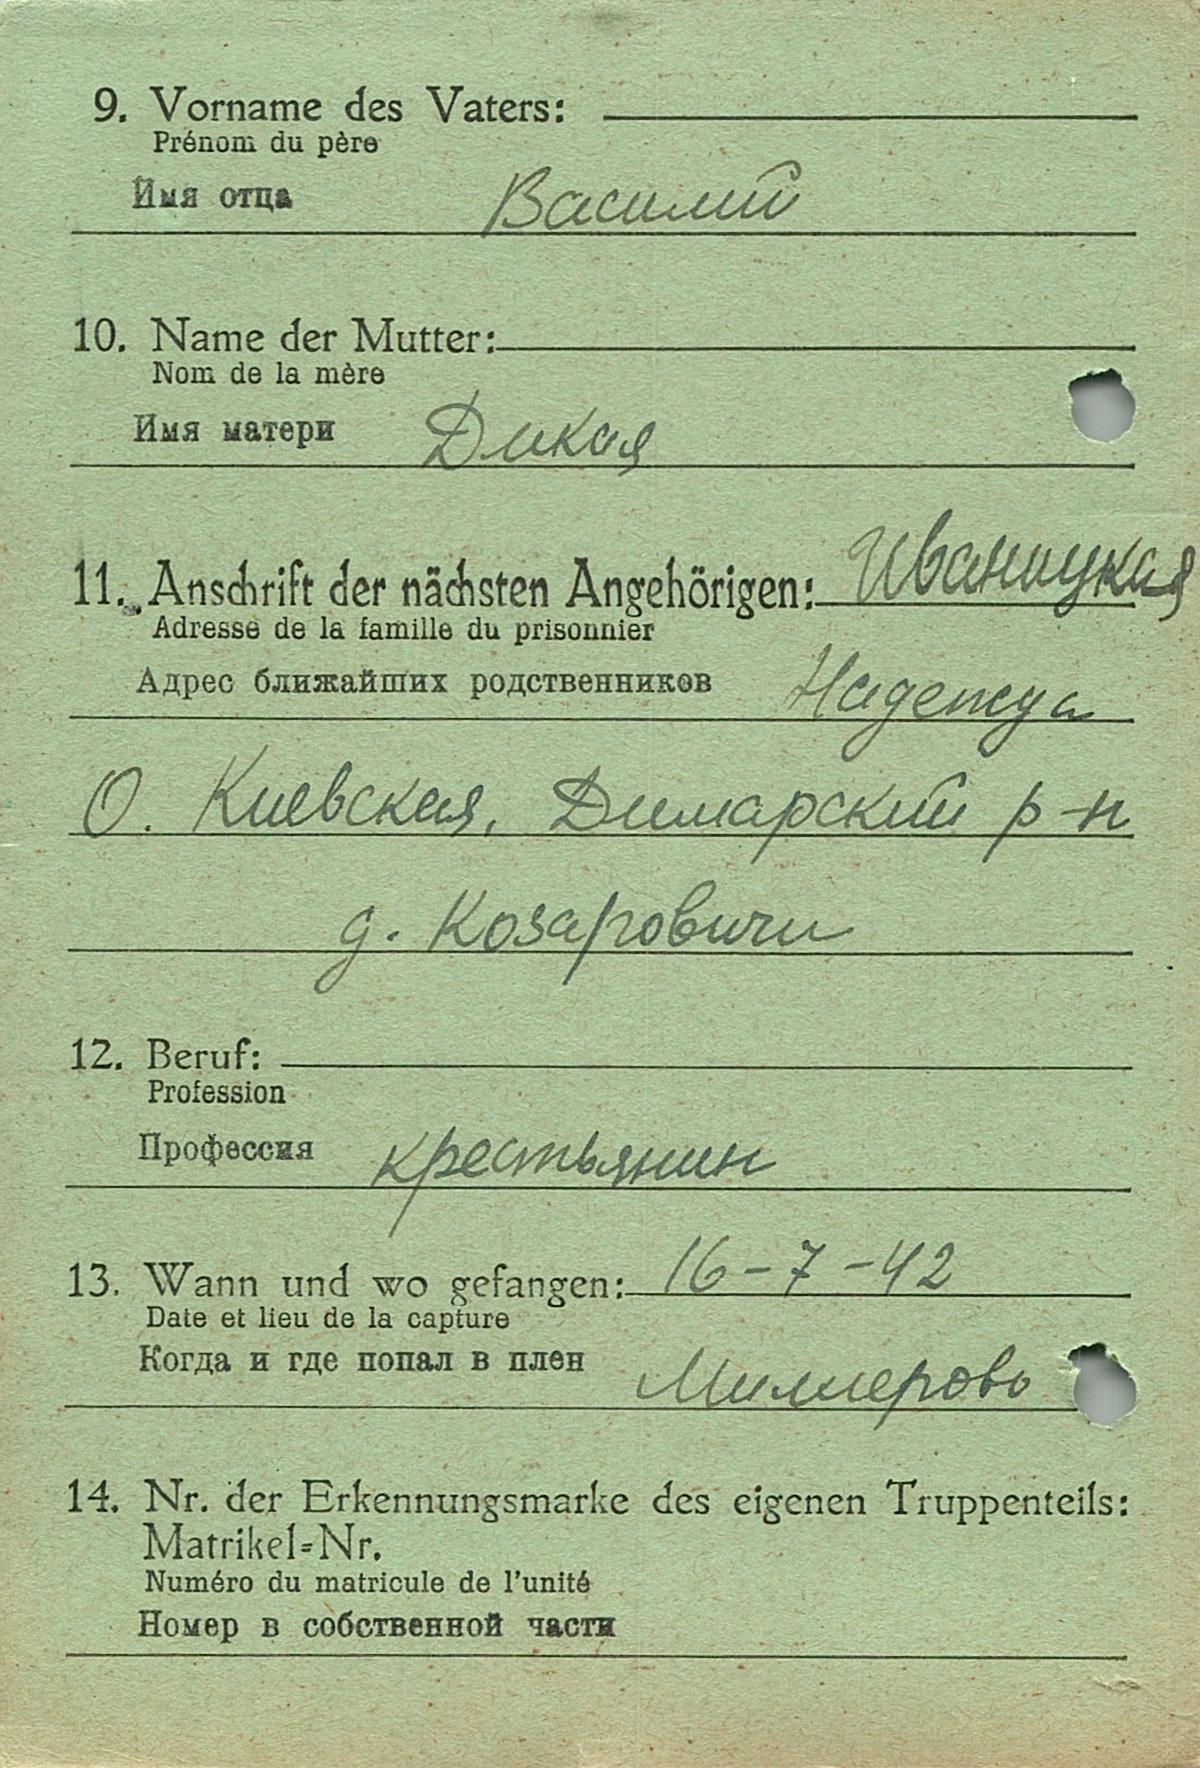 9. Vorname des Vaters:
Prénom du père
Имя отца Василий
10. Name der Mutter:
Nom de la mère
Имя матери Дикая
11. Anschrift der nächsten Angehörigen: Иваницкая
Adresse de la famille du prisonnier
Адрес ближайших родственников Надежда
О. Киевская, Димарский р-н
д. Козаровичи
12. Beruf:
Profession
Профессия крестьянин
13. Wann und wo gefangen: 16-7-42
Date et lieu de la capture
Когда и где попал в плен Миллерово
14. Nr. der Erkennungsmarke des eigenen Truppenteils:
Matrikel-Nr.
Numéro du matricule de l'unité
Номер в собственной части